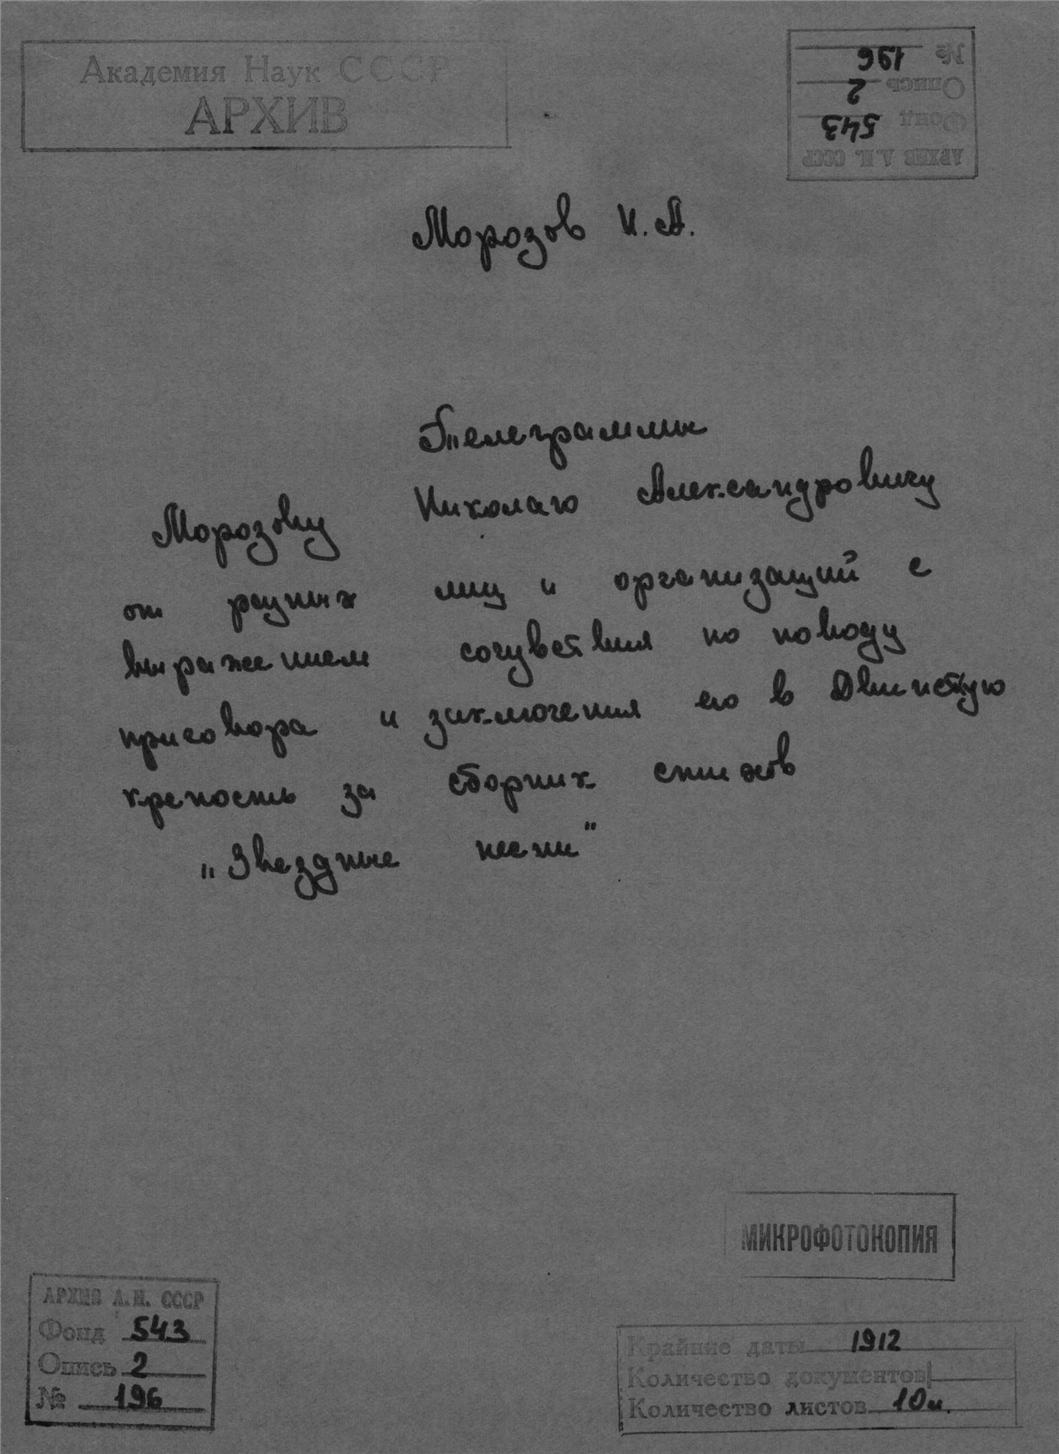 Академия Наук СССР
АРХИВ
№ 196
Опись 2
Фонд 543
АРХИВ А.Н. СССР
Морозов Н.А.
Телеграммы
Морозову Николаю Александровичу
от разных лиц и организаций с
выражением сочувствия по поводу
приговора и заключения его в Двинскую
крепость за сборник стихов
„Звездные песни"
МИКРОФОТОКОПИЯ
АРХИВ А.Н. СССР
Фонд 543
Опись 2
№ 196
Крайние даты 1912
Количество документов
Количество листов 10 л.